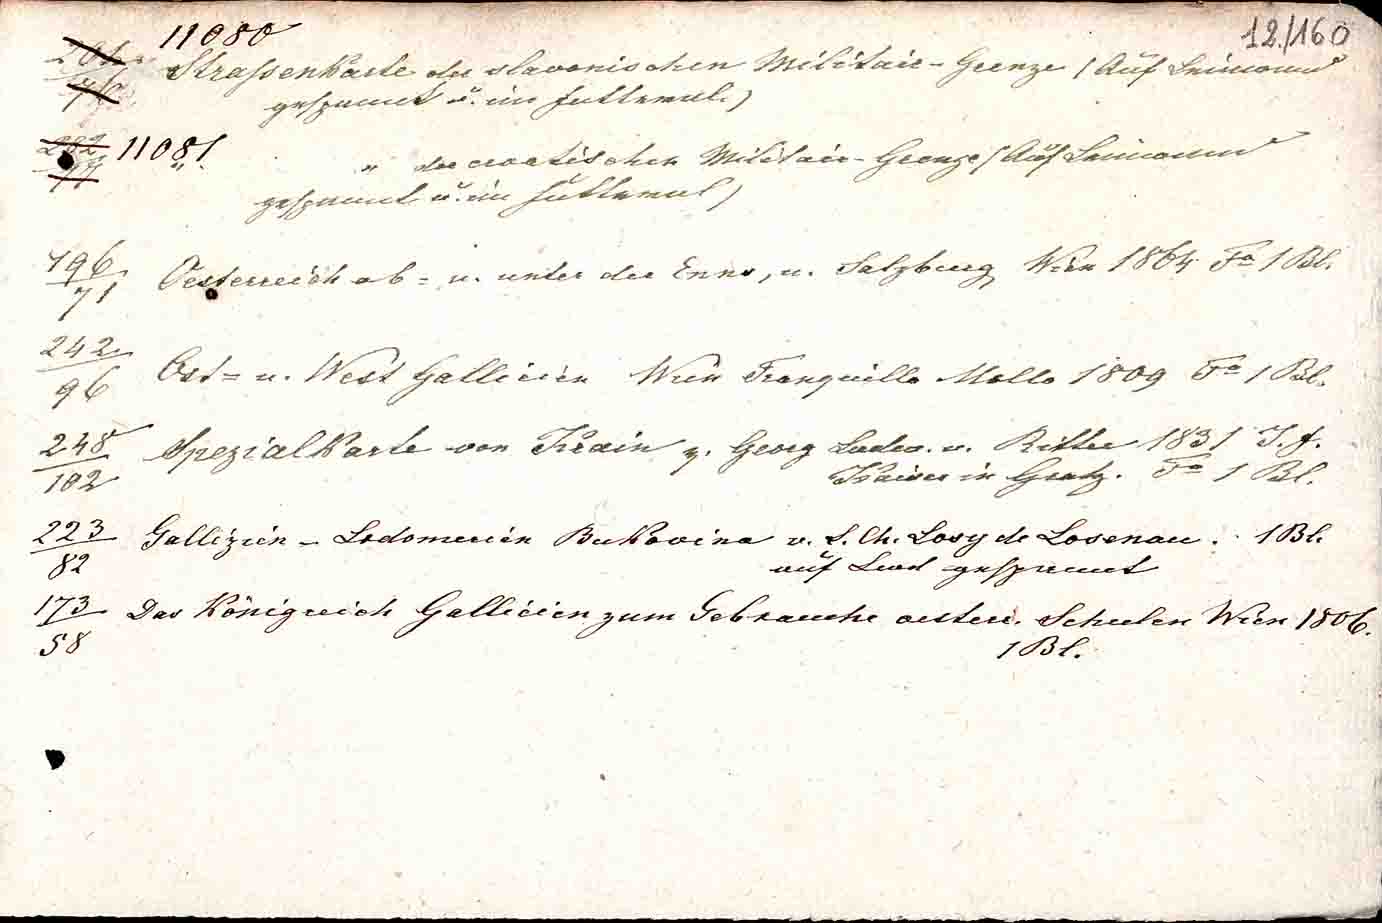 12./160
11080
Strassenkarte der slavonischen Militair-Grenze (Auf Leinwand
gespannt u. im Futteral.)
11081.
" der croatischen Militair-Grenze (Auf Leinwand
gespannt u. im Futteral)
196/71 Oesterreich ob= u. unter der Enns, u. Salzburg Wien 1864 Fo 1 Bl.
242/96 Ost= u. West Gallicien Wien Tranquillo Mollo 1809 Fo 1 Bl.
248/102 Spezialkarte von Krain v. Georg Ludw. v. Ritter 1831 J. F.
Kaiser in Gratz. Fo 1 Bl.
223/82 Gallizien - Lodomerien Bukovina v. L. Ch. Losy de Losenau. 1 Bl.
auf Lwd gespannt
173/58 Das Königreich Gallicien zum Gebrauche oesterr. Schulen Wien 1806.
1 Bl.